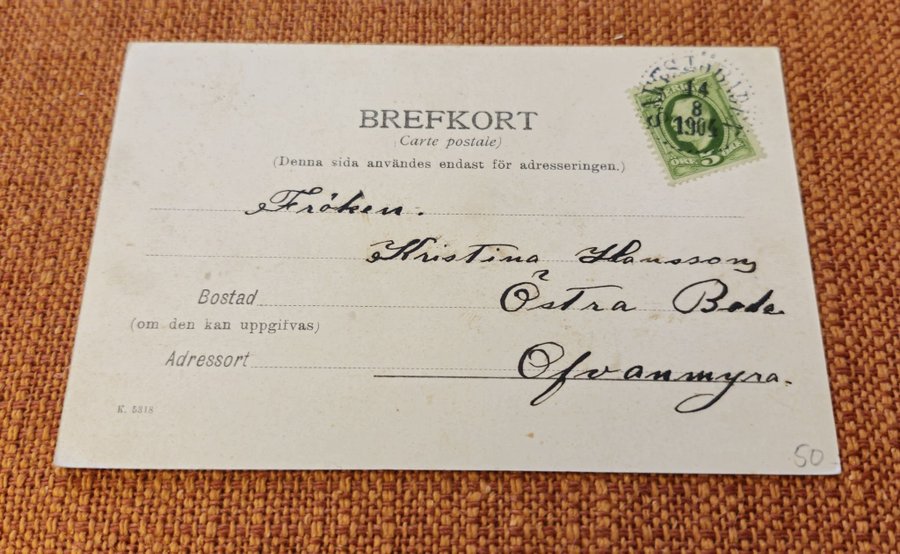 BREFKORT
(Carte postale)
(Denna sida användes endast för adresseringen.)
14
8
1904
ÖRE 5
Fröken.
Kristina Hansson
Bostad
Östra Bode
(om den kan uppgifvas)
Adressort
Ofvanmyra.
K. 5318
50